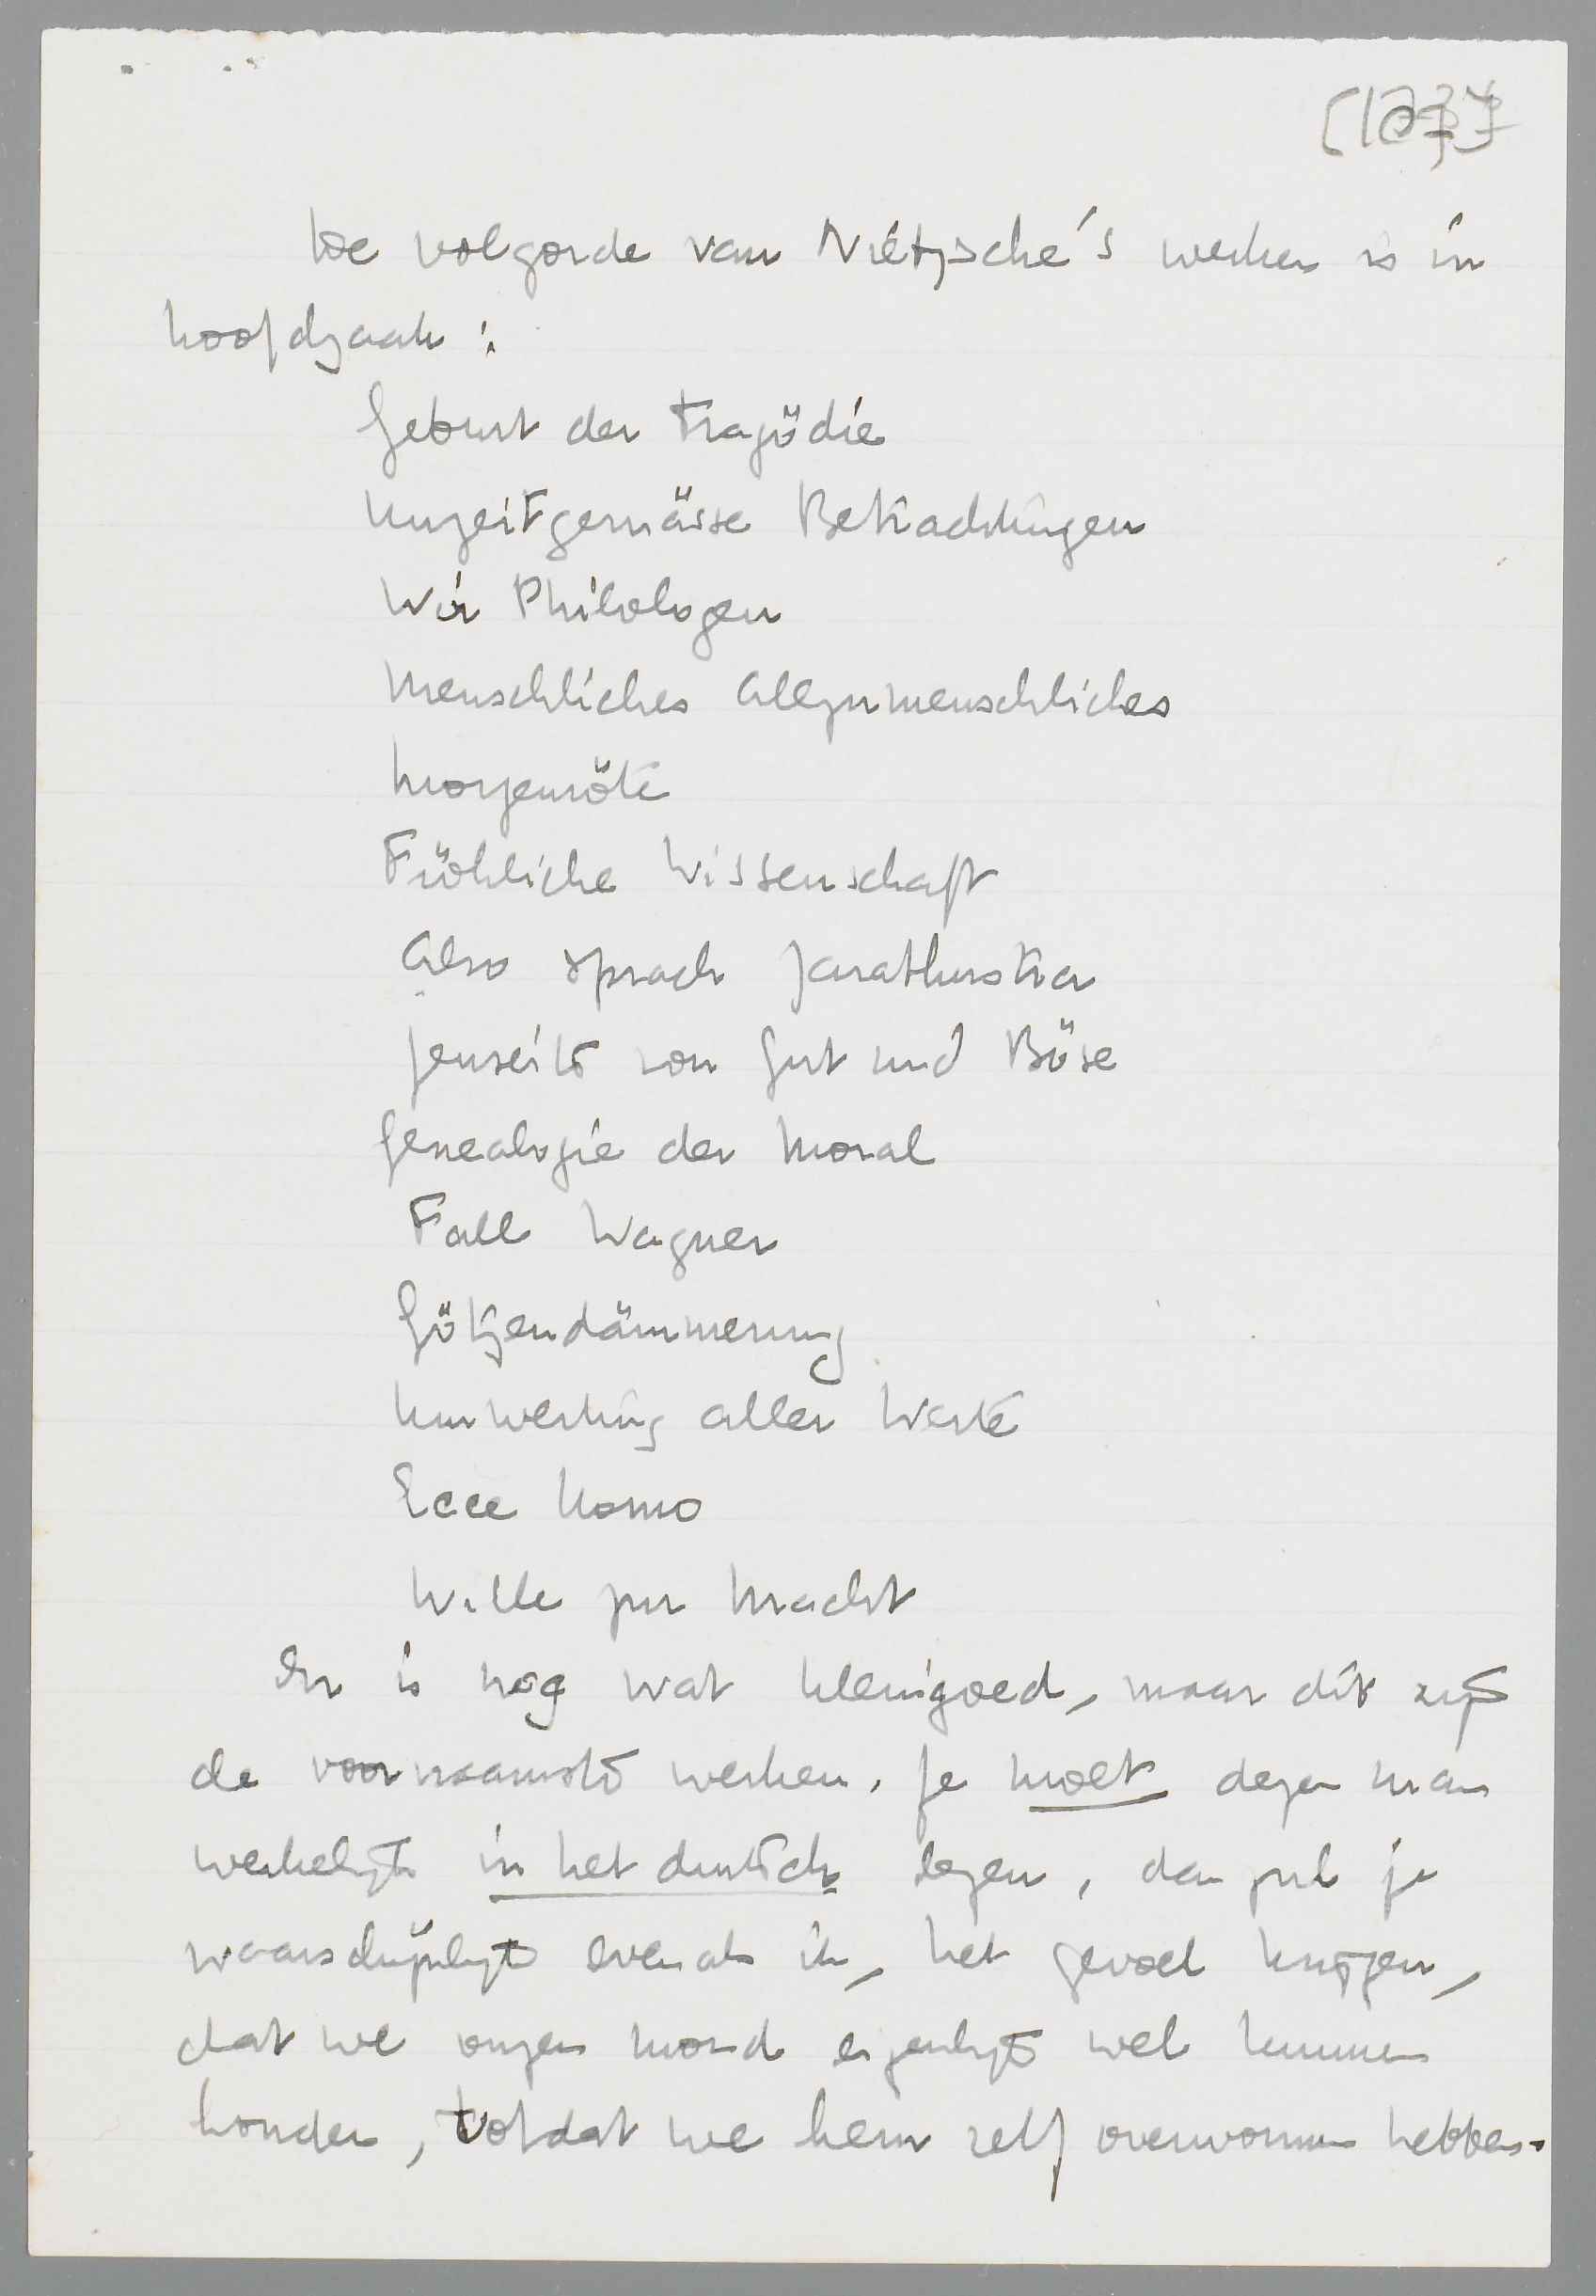 De volgorde van Nietzsche's werken is in
hoofdzaak:
Geburt der Tragödie
Unzeitgemässe Betrachtungen
Wir Philologen
Menschliches Allzumenschliches
Morgenröte
Fröhliche Wissenschaft
Also sprach Zarathustra
Jenseits von Gut und Böse
Genealogie der Moral
Fall Wagner
Götzendämmerung
Umwertung aller Werte
Ecce homo
Wille zur Macht
Er is nog wat kleingoed, maar dit zijn
de voornaamste werken. Je moet dezen man
werkelijk in het duitsch lezen, dan zul je
waarschijnlijk evenals ik, het gevoel krijgen,
dat we onzen mond eigenlijk wel kunnen
houden, totdat we hem zelf overwonnen hebben.